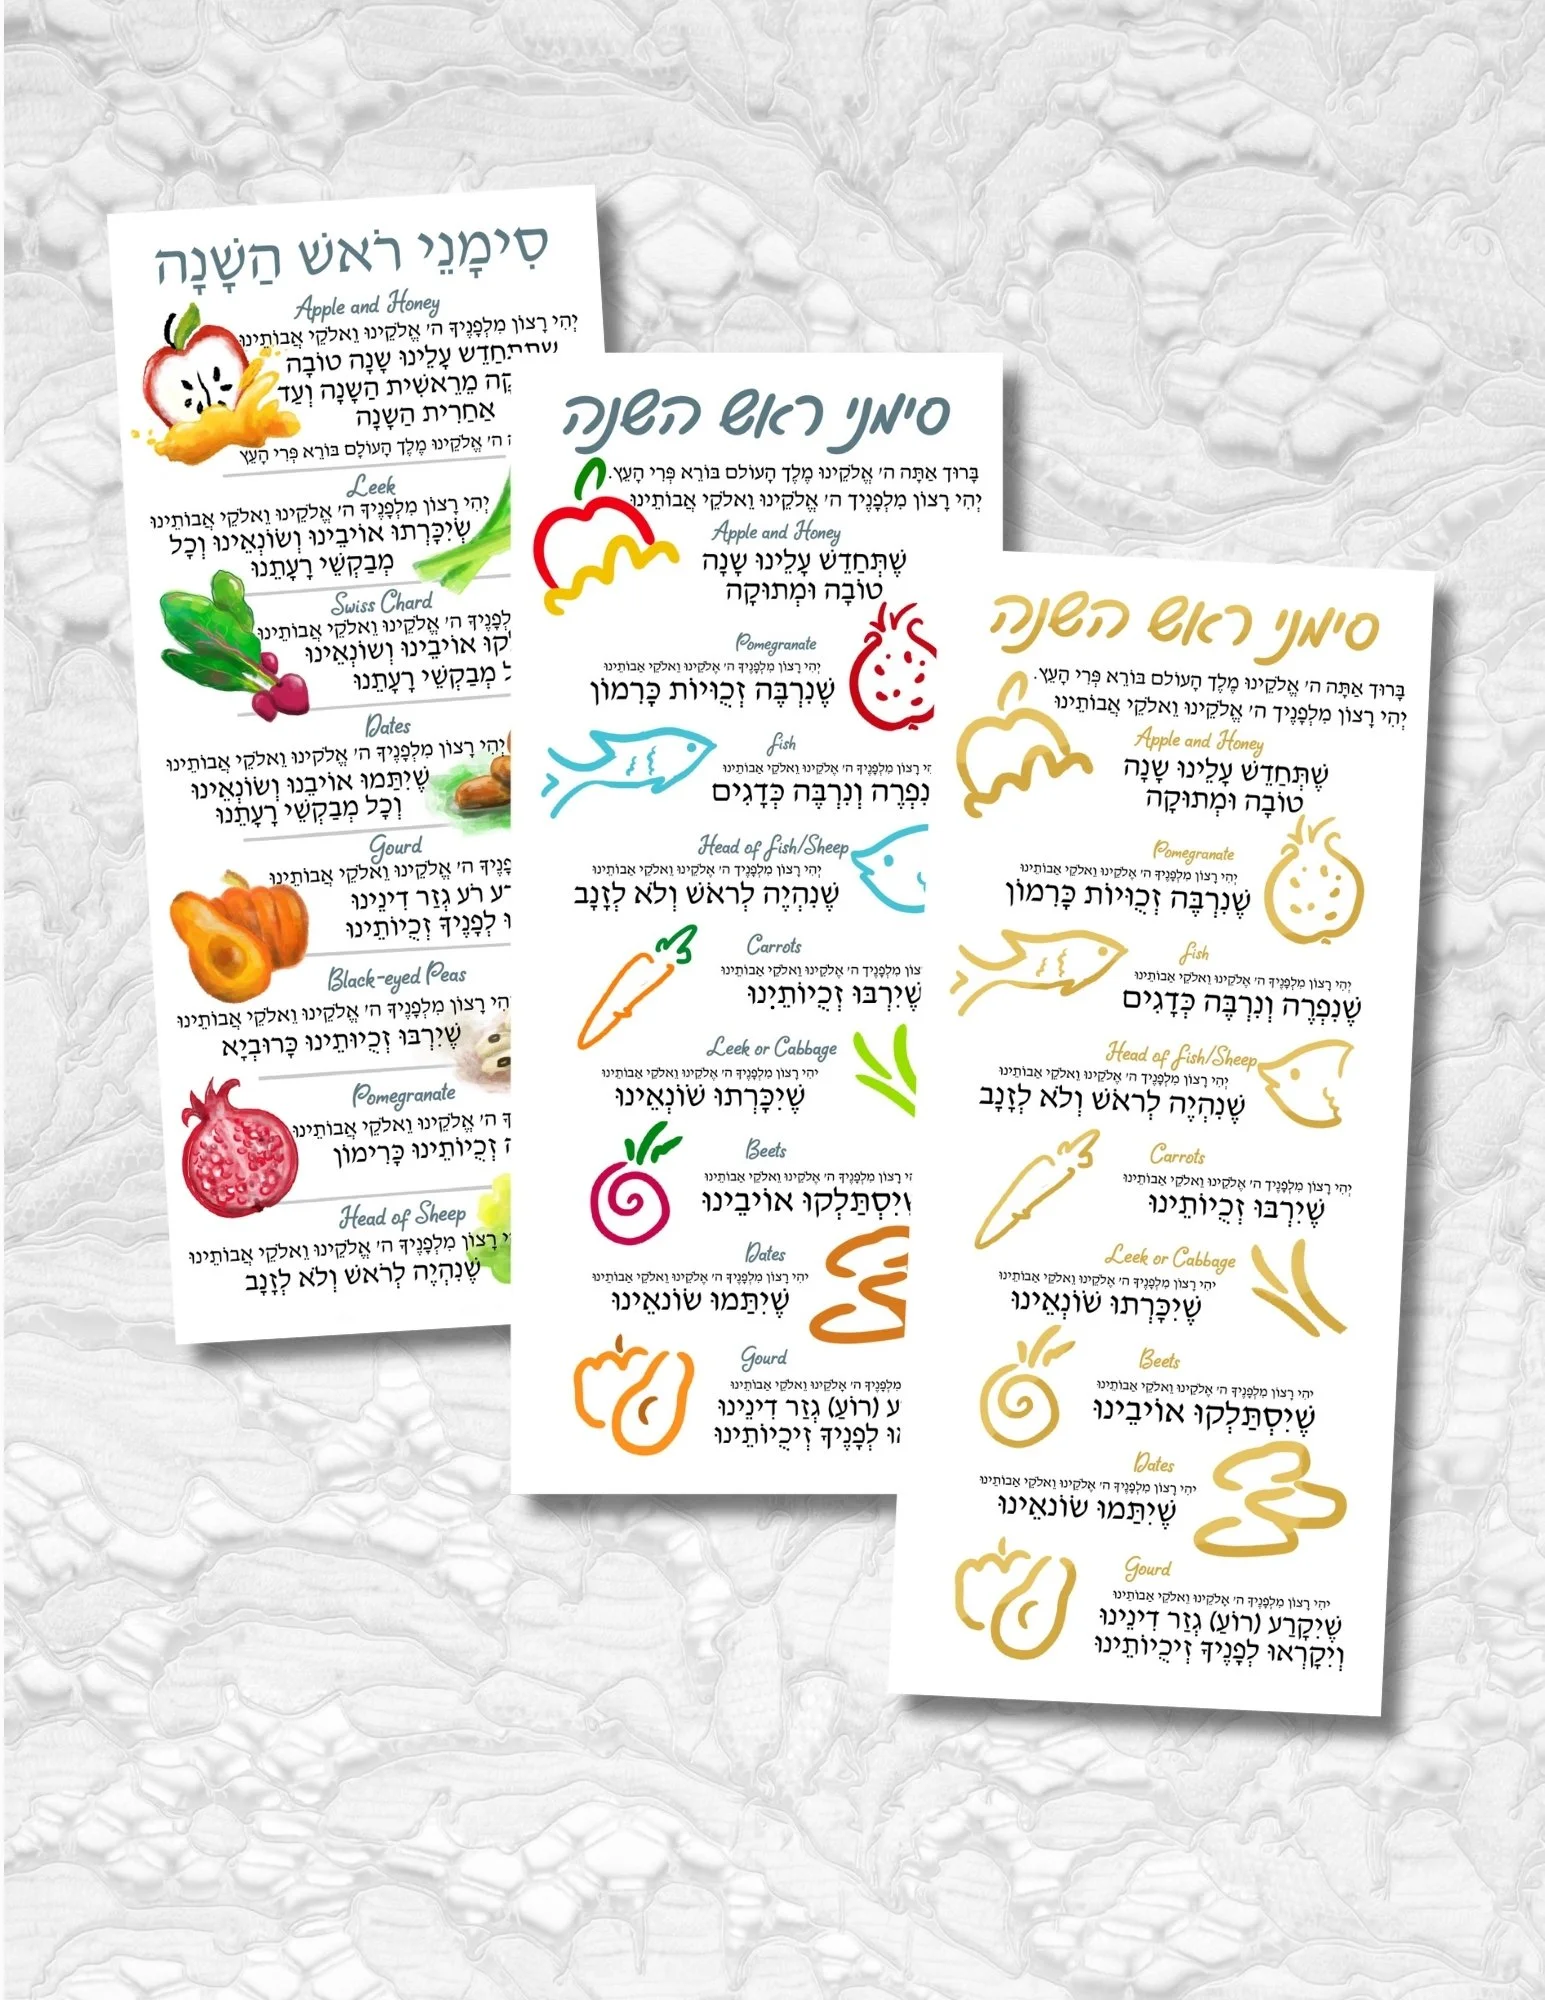 סִימָנֵי רֹאשׁ הַשָּׁנָה
Apple and Honey
יְהִי רָצוֹן מִלְפָנֶיךָ ה' אֱלֹקֵינוּ וֵאלֹקֵי אֲבוֹתֵינוּ
שֶׁתְּחַדֵשׁ עָלֵינוּ שָׁנָה טוֹבָה
מֵרֵאשִׁית הַשָּׁנָה וְעַד
אַחֲרִית הַשָּׁנָה
ה' אֱלֹקֵינוּ מֶלֶךְ הָעוֹלָם בּוֹרֵא פְּרִי הָעֵץ
Leek
יְהִי רָצוֹן מִלְפָנֶיךָ ה' אֱלֹקֵינוּ וֵאלֹקֵי אֲבוֹתֵינוּ
שֶׂיִּכָּרְתוּ אוֹיְבֵינוּ וְשׂוֹנְאֵינוּ וְכָל
מְבַקְשֵׁי רָעָתֵנוּ
Swiss Chard
ה' אֱלֹקֵינוּ וֵאלֹקֵי אֲבוֹתֵינוּ
אוֹיְבֵינוּ וְשׂוֹנְאֵינוּ
מְבַקְשֵׁי רָעָתֵנוּ
Dates
יְהִי רָצוֹן מִלְפָנֶיךָ ה' אֱלֹקֵינוּ וֵאלֹקֵי אֲבוֹתֵינוּ
שֶׁיִּתַּמּוּ אוֹיְבֵנוּ וְשׂוֹנְאֵינוּ
וְכָל מְבַקְשֵׁי רָעָתֵנוּ
Gourd
ה' אֱלֹקֵינוּ וֵאלֹקֵי אֲבוֹתֵינוּ
רֹעַ גְזַר דִינֵינוּ
לְפָנֶיךָ זְכֻיּוֹתֵינוּ
Black-eyed Peas
יְהִי רָצוֹן מִלְפָנֶיךָ ה' אֱלֹקֵינוּ וֵאלֹקֵי אֲבוֹתֵינוּ
שֶׁיִּרְבּוּ זְכֻיּוֹתֵינוּ כָּרוּבְיָא
Pomegranate
ה' אֱלֹקֵינוּ וֵאלֹקֵי אֲבוֹתֵינוּ
זְכֻיּוֹתֵינוּ כָּרִימּוֹן
Head of Sheep
יְהִי רָצוֹן מִלְפָנֶיךָ ה' אֱלֹקֵינוּ וֵאלֹקֵי אֲבוֹתֵינוּ
שֶׁנִּהְיֶה לְרֹאשׁ וְלֹא לְזָנָב
סימני ראש השנה
בָּרוּךְ אַתָּה ה' אֱלֹקֵינוּ מֶלֶךְ הָעוֹלם בּוֹרֵא פְּרִי הָעֵץ.
יְהִי רָצוֹן מִלְפָנֶיךָ ה' אֱלֹקֵינוּ וֵאלֹקֵי אֲבוֹתֵינוּ
Apple and Honey
שֶׁתְּחַדֵשׁ עָלֵינוּ שָׁנָה
טוֹבָה וּמְתוּקָה
Pomegranate
יְהִי רָצוֹן מִלְפָנֶיךָ ה' אֱלֹקֵינוּ וֵאלֹקֵי אֲבוֹתֵינוּ
שֶׁנִרְבֶּה זְכֻויּוֹת כָּרִמוֹן
Fish
רָצוֹן מִלְפָנֶיךָ ה' אֱלֹקֵינוּ וֵאלֹקֵי אֲבוֹתֵינוּ
וְנִרְבֶּה כְּדָגִים
Head of Fish/Sheep
יְהִי רָצוֹן מִלְפָנֶיךָ ה' אֱלֹקֵינוּ וֵאלֹקֵי אֲבוֹתֵינוּ
שֶׁנִהְיֶה לְרֹאשׁ וְלֹא לְזָנָב
Carrots
מִלְפָנֶיךָ ה' אֱלֹקֵינוּ וֵאלֹקֵי אֲבוֹתֵינוּ
שֶׁיִרְבּוּ זְכֻיוֹתֵינוּ
Leek or Cabbage
יְהִי רָצוֹן מִלְפָנֶיךָ ה' אֱלֹקֵינוּ וֵאלֹקֵי אֲבוֹתֵינוּ
שֶׁיִכָּרְתוּ שׂוֹנְאֵינוּ
Beets
רָצוֹן מִלְפָנֶיךָ ה' אֱלֹקֵינוּ וֵאלֹקֵי אֲבוֹתֵינוּ
אוֹיבֵינוּ
Dates
יְהִי רָצוֹן מִלְפָנֶיךָ ה' אֱלֹקֵינוּ וֵאלֹקֵי אֲבוֹתֵינוּ
שֶׁיִתַּמוּ שׂוֹנאֵינוּ
Gourd
מִלְפָנֶיךָ ה' אֱלֹקֵינוּ וֵאלֹקֵי אֲבוֹתֵינוּ
(רוֹעַ) גְזַר דִינֵינוּ
לְפָנֶיךָ זִיכֻיוֹתֵינוּ
סימני ראש השנה
בָּרוּךְ אַתָּה ה' אֱלֹקֵינוּ מֶלֶךְ הָעוֹלם בּוֹרֵא פְּרִי הָעֵץ.
יְהִי רָצוֹן מִלְפָנֶיךָ ה' אֱלֹקֵינוּ וֵאלֹקֵי אֲבוֹתֵינוּ
Apple and Honey
שֶׁתְּחַדֵשׁ עָלֵינוּ שָׁנָה
טוֹבָה וּמְתוּקָה
Pomegranate
יְהִי רָצוֹן מִלְפָנֶיךָ ה' אֱלֹקֵינוּ וֵאלֹקֵי אֲבוֹתֵינוּ
שֶׁנִרְבֶּה זְכֻויּוֹת כָּרִמוֹן
Fish
יְהִי רָצוֹן מִלְפָנֶיךָ ה' אֱלֹקֵינוּ וֵאלֹקֵי אֲבוֹתֵינוּ
שֶׁנִפְרֶה וְנִרְבֶּה כְּדָגִים
Head of Fish/Sheep
יְהִי רָצוֹן מִלְפָנֶיךָ ה' אֱלֹקֵינוּ וֵאלֹקֵי אֲבוֹתֵינוּ
שֶׁנִהְיֶה לְרֹאשׁ וְלֹא לְזָנָב
Carrots
יְהִי רָצוֹן מִלְפָנֶיךָ ה' אֱלֹקֵינוּ וֵאלֹקֵי אֲבוֹתֵינוּ
שֶׁיִרְבּוּ זְכֻיוֹתֵינוּ
Leek or Cabbage
יְהִי רָצוֹן מִלְפָנֶיךָ ה' אֱלֹקֵינוּ וֵאלֹקֵי אֲבוֹתֵינוּ
שֶׁיִכָּרְתוּ שׂוֹנְאֵינוּ
Beets
יהִי רָצוֹן מִלְפָנֶיךָ ה' אֱלֹקֵינוּ וֵאלֹקֵי אֲבוֹתֵינוּ
שֶׁיִסְתַּלְקוּ אוֹיבֵינוּ
Dates
יְהִי רָצוֹן מִלְפָנֶיךָ ה' אֱלֹקֵינוּ וֵאלֹקֵי אֲבוֹתֵינוּ
שֶׁיִתַּמוּ שׂוֹנאֵינוּ
Gourd
יהִי רָצוֹן מִלְפָנֶיךָ ה' אֱלֹקֵינוּ וֵאלֹקֵי אֲבוֹתֵינוּ
שֶׁיִקָרַע (רוֹעַ) גְזַר דִינֵינוּ
וְיִקָרְאוּ לְפָנֶיךָ זִיכֻיוֹתֵינוּ